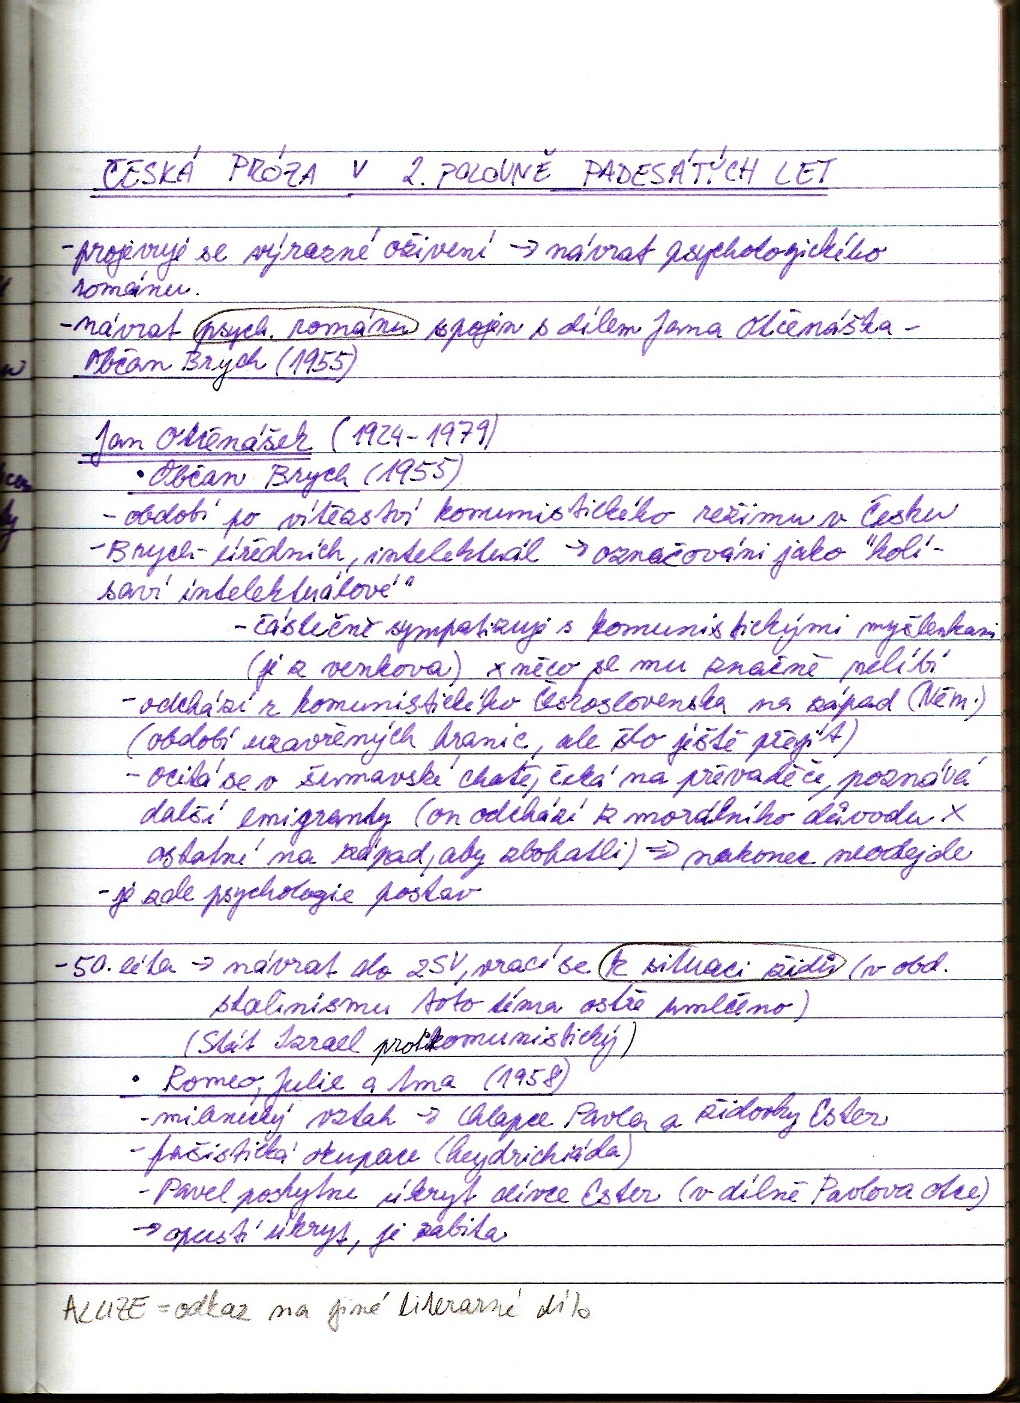 ČESKÁ PRÓZA V 2. POLOVNĚ PADESÁTÝCH LET
-projevuje se výrazné oživení → návrat psychologického
románu.
-návrat psych. románu spojen s dílem Jana Otčenáška -
Občan Brych (1955)
Jan Otčenášek (1924-1979)
• Občan Brych (1955)
- období po vítězství komunistického režimu v Česku
- Brych- úředních, intelektuál → označování jako "kolí-
saví intelektuálové"
- částečně sympatizuje s komunistickými myšlenkami
(je z venkova) x něco se mu značně nelíbí
- odchází z komunistického Československa na západ (Něm.)
(období uzavřených hranic, ale šlo ještě přejít)
- ocitá se v šumavské chatě, čeká na převaděče, poznává
další emigranty (on odchází z morálního důvodu x
ostatní na západ, aby zbohatli) ⇒ nakonec neodejde
- je zde psychologie postav
- 50. léta → návrat do 2SV, vrací se k situaci židů (v obd.
stalinismu toto téma ostře umlčeno)
(Stát Izrael protikomunistický)
• Romeo, Julie a tma (1958)
- milenecký vztah → chlapce Pavla a židovky Ester
- fašistická okupace (heydrichiáda)
- Pavel poskytne úkryt dívce Ester (v dílně Pavlova otce)
→ opustí úkryt, je zabita
ALUZE = odkaz na jiné literarné dílo